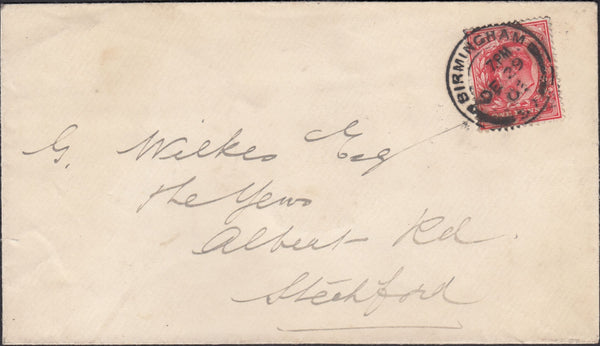 BIRMINGHAM
7 PM
DE 29
G. Wilkes Esq
The Yews
Albert Rd.
Stechford